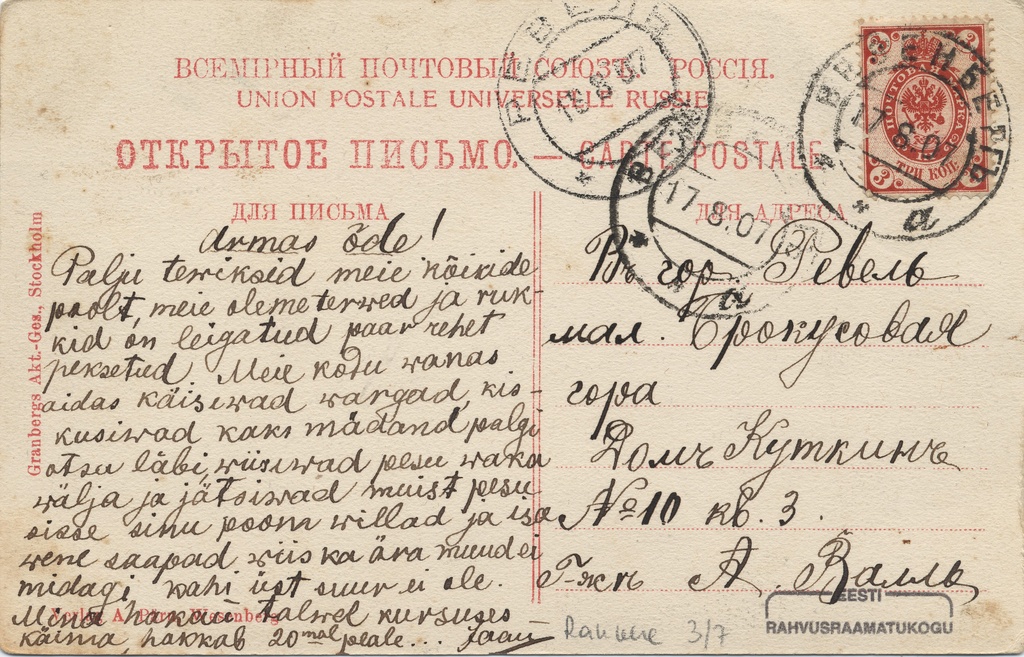 ВСЕМІРНЫЙ ПОЧТОВЫЙ СОЮЗЪ. РОССІЯ.
UNION POSTALE UNIVERSELLE RUSSIE
ОТКРЫТОЕ ПИСЬМО. — CARTE POSTALE
РЕВЕЛЬ
16 8 07
ВЕЗЕНБЕРГЪ
17.8.07
a
17.8.07
a
ПОЧТОВАЯ МАРКА
ТРИ КОП.
3 3 3 3
ДЛЯ ПИСЬМА
Armas õde!
Palju terwiksid meie kõikide
poolt, meie oleme terwed ja ruk-
kid on leigatud paar rehet
peksetud. Meie kodu wanas
aidas käisiwad wargad, kis-
kusiwad kaks mädand palgi
otsa läbi, wiisiwad pesu waka
wälja ja jätsiwad muist pesu
sisse sinu poom willad ja isa
wene saapad wiis ka ära muud ei
midagi, kahi üst suur ei ole.
Mina hakkan talwel kursuses
käima, hakkab 20mal peale... Jaan
ДЛЯ АДРЕСА
Въ гор Ревель
мал. Брокусовая
гора
Домъ Куткинъ
№ 10 кв. 3.
Г-жъ А. Валль
Granbergs Akt.-Ges., Stockholm
Verlag A. Wesenberg
Rakvere 3/7
EESTI
RAHVUSRAAMATUKOGU